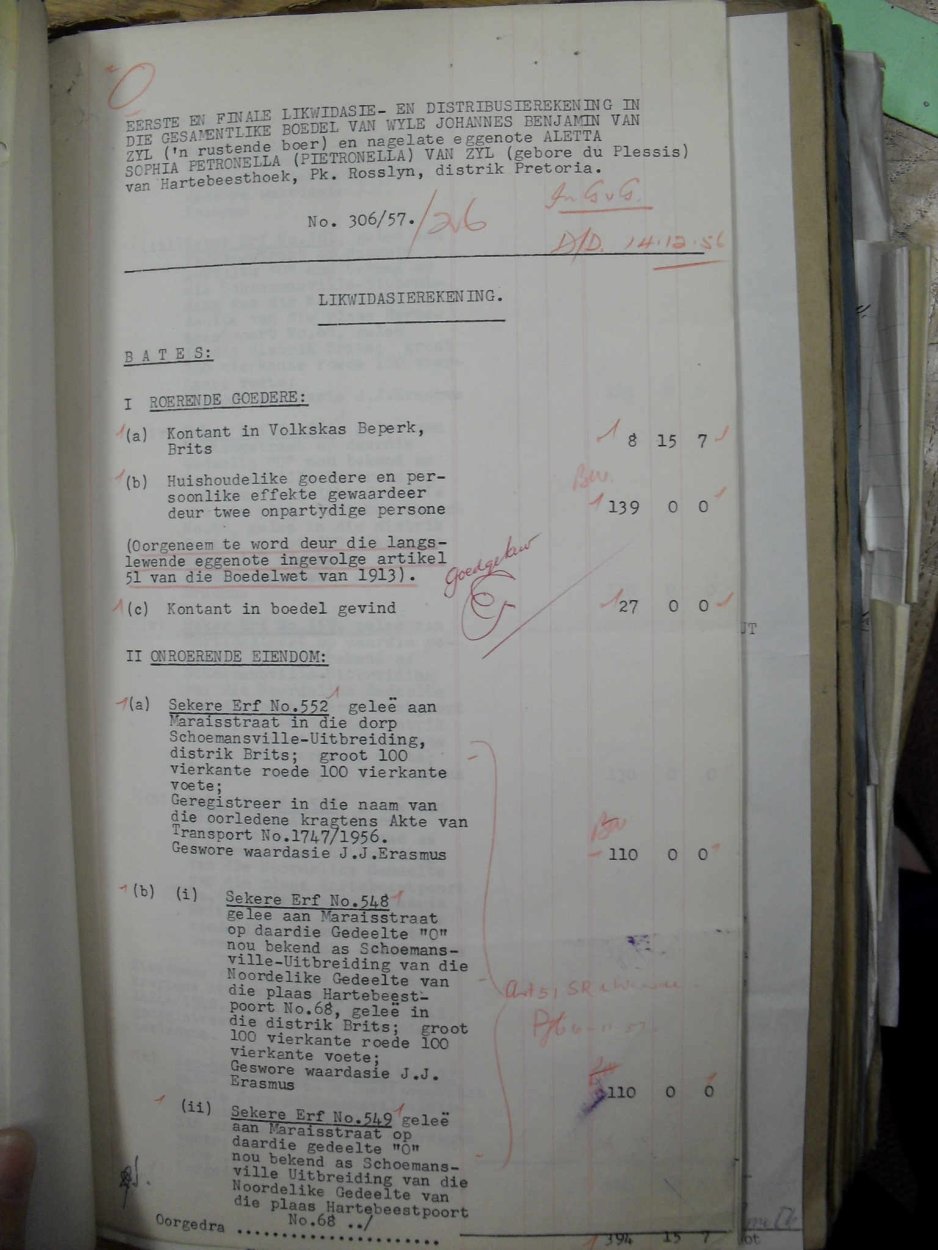 EERSTE EN FINALE LIKWIDASIE- EN DISTRIBUSIEREKENING IN
DIE GESAMENTLIKE BOEDEL VAN WYLE JOHANNES BENJAMIN VAN
ZYL ('n rustende boer) en nagelate eggenote ALETTA
SOPHIA PETRONELLA (PIETRONELLA) VAN ZYL (gebore du Plessis)
van Hartebeesthoek, Pk. Rosslyn, distrik Pretoria.
In G v G.
No. 306/57.
D/D. 14.12.56
LIKWIDASIEREKENING.
B A T E S:
I ROERENDE GOEDERE:
(a) Kontant in Volkskas Beperk,
Brits 8 15 7
(b) Huishoudelike goedere en per-
soonlike effekte gewaardeer
deur twee onpartydige persone 139 0 0
(Oorgeneem te word deur die langs-
lewende eggenote ingevolge artikel
51 van die Boedelwet van 1913).
Goedgekeur
(c) Kontant in boedel gevind 27 0 0
II ONROERENDE EIENDOM:
(a) Sekere Erf No.552 geleë aan
Maraisstraat in die dorp
Schoemansville-Uitbreiding,
distrik Brits; groot 100
vierkante roede 100 vierkante
voete;
Geregistreer in die naam van
die oorledene kragtens Akte van
Transport No.1747/1956.
Geswore waardasie J.J.Erasmus 110 0 0
(b) (i) Sekere Erf No.548
gelee aan Maraisstraat
op daardie Gedeelte "O"
nou bekend as Schoemans-
ville-Uitbreiding van die
Noordelike Gedeelte van
die plaas Hartebeest-
poort No.68, geleë in
die distrik Brits; groot
100 vierkante roede 100
vierkante voete;
Geswore waardasie J.J.
Erasmus 110 0 0
(ii) Sekere Erf No.549 geleë
aan Maraisstraat op
daardie gedeelte "O"
nou bekend as Schoemans-
ville Uitbreiding van die
Noordelike Gedeelte van
die plaas Hartebeestpoort
No.68 ../
Oorgedra .................... 394 15 7